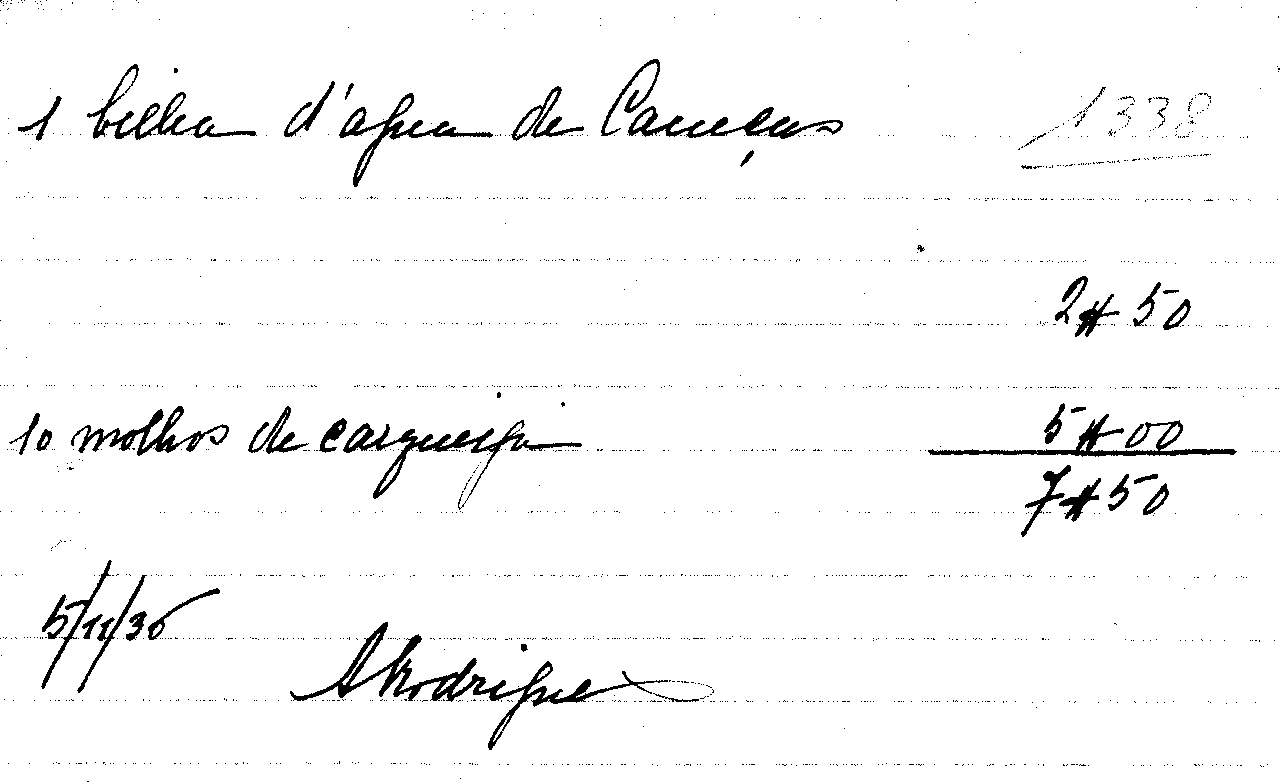 1 bilha d'agua de Caneças 1338
2$50
10 molhos de carqueija 5$00
7$50
5/11/36
ARodrigues